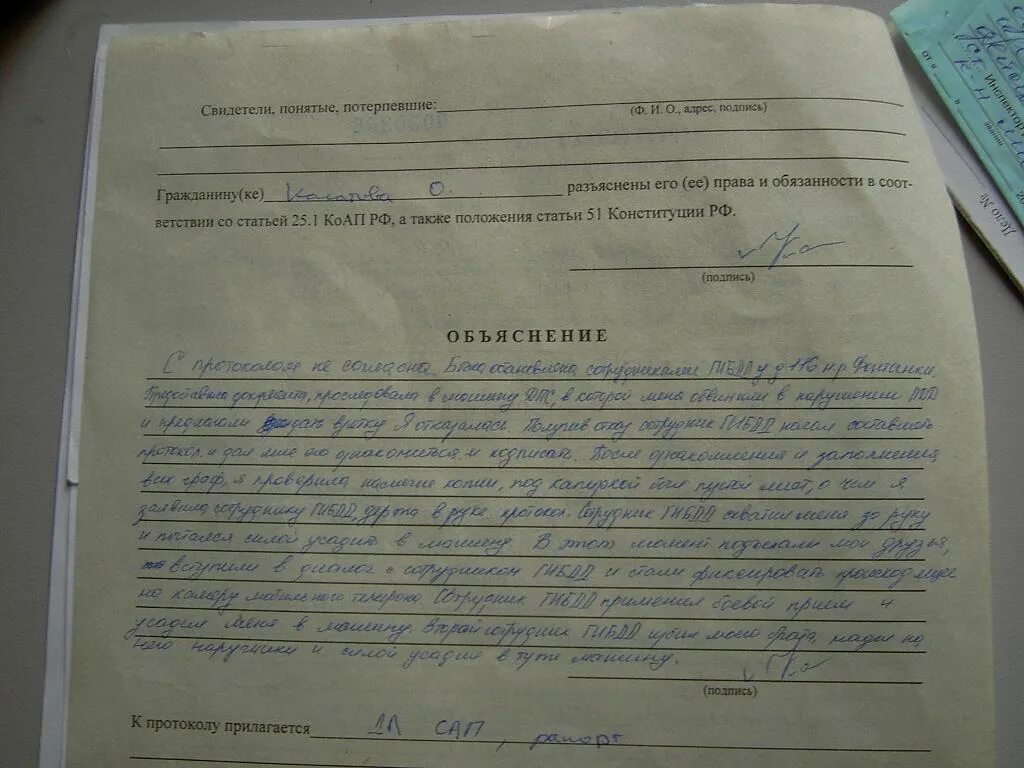 Свидетели, понятые, потерпевшие:
(Ф. И. О., адрес, подпись)
Гражданину(ке) О. разъяснены его (ее) права и обязанности в соот-
ветствии со статьей 25.1 КоАП РФ, а также положения статьи 51 Конституции РФ.
(подпись)
ОБЪЯСНЕНИЕ
С протоколом не согласна. Была остановлена сотрудниками ГИБДД у д 116 н.р Фонтанки.
Предоставив документы, проследовала в машину ДПС, в которой меня обвинили в нарушении ПДД
и предложили дать взятку. Я отказалась. Получив отказ сотрудник ГИБДД начал составлять
протокол и дал мне его ознакомиться и подписать. После ознакомления и заполнения
всех граф, я проверила наличие копии, под копиркой был пустой лист, о чем я
заявила сотруднику ГИБДД, держа в руке протокол. Сотрудник ГИБДД схватил меня за руку
и пытался силой усадить в машину. В этот момент подъехали мои друзья,
вступили в диалог с сотрудником ГИБДД и стали фиксировать происходящее
на камеру мобильного телефона. Сотрудник ГИБДД применил боевой прием и
усадил меня в машину. Второй сотрудник ГИБДД моего брата, надел на
него наручники и силой усадил в ту же машину.
(подпись)
К протоколу прилагается 1Л САП, рапорт
от «
Инспектор
звание
Дело №